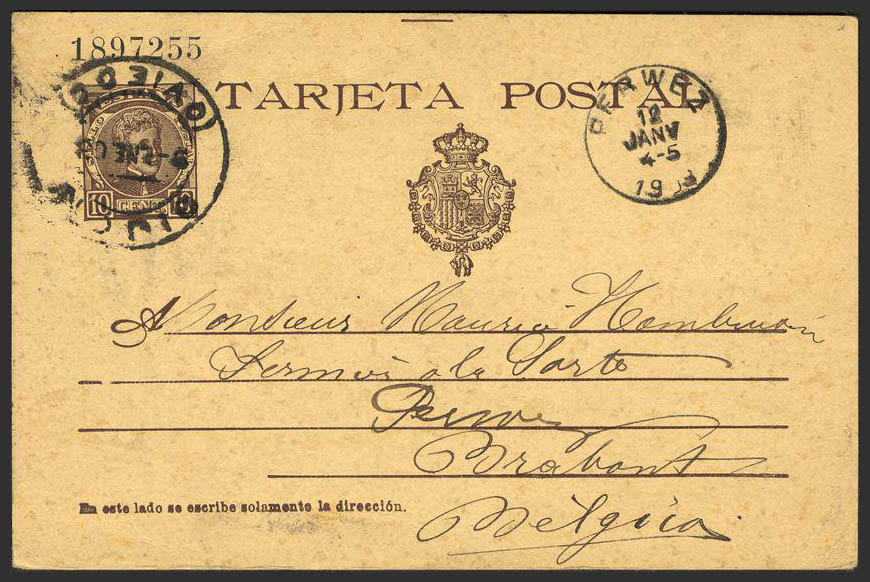 1897255
TARJETA POSTAL
OVIEDO
10 CENT. 10
PERWEZ
12
JANV
4-5
19
A Monsieur Maurice
à la Sarte
Perwez
Brabant
Bélgica
En este lado se escribe solamente la dirección.